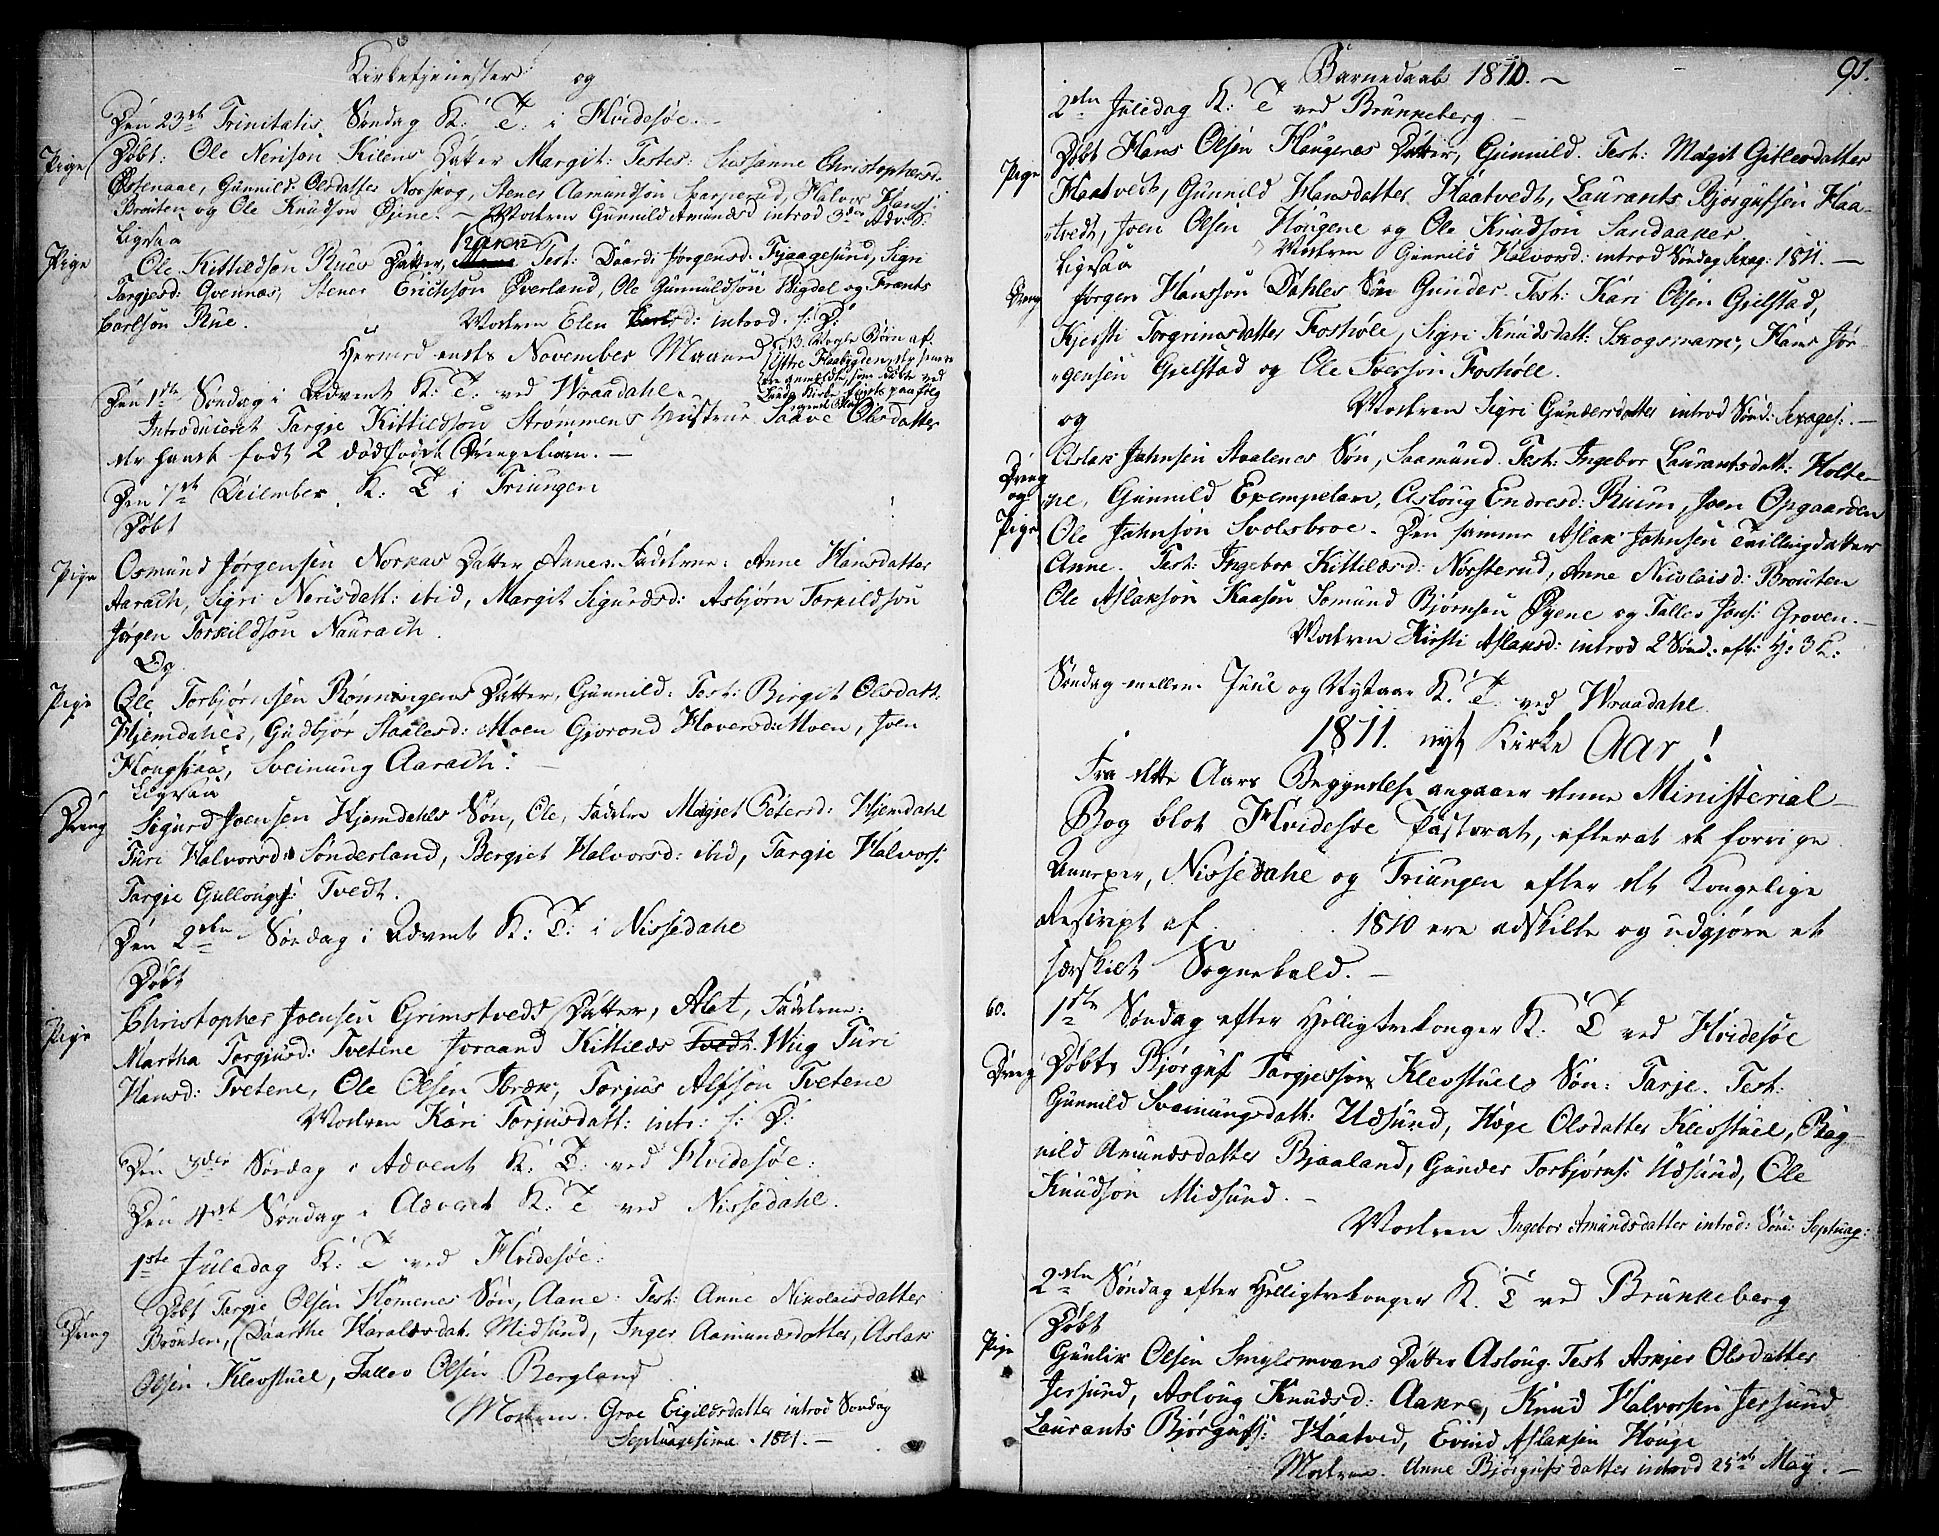 Kirketjenester og
Den 23de Trinitatis Søndag K: T: i Hvidesøe.
Pige Døbt: Ole Nerison Kilens Datter Margit: Testes: Susanne Christophersd:
Østenaae, Gunnild Olsdatter Norskog, Stener Aamundson Sparperud, Halvor Hans:
Brouten og Ole Knudson Øiene. — Modren Gunnild Amundsd introd 3die Adv: S:
Ligesaa
Pige Ole Kittildson Rues Datter, Karen Test: Daardi Jørgensd: Fjaagesund, Sigri
Targjesd: Qvennæs, Stener Erichson Øverland, Ole Gunnuldson Vigdal og Frants
Carlson Rue. Modren Elen introd. s: D:
Hermed endte November Maaned
NB. Nogle Børn af
Den 1ste Søndag i Advent K: T: ved Wraadahl.
Introduceret Targje Kittildson Strømmens Hustrue Saave Olsdatter
der havde født 2 dødfødt Drengebørn. —
Den 7de December K: T i Triungen
Døbt
Pige Osmund Jørgensen Norkas Datter Anne. Faddere: Anne Hansdatter
Aarach, Sigri Nerisdatt: ibid, Margit Sigurdsd: Asbjørn Torkildson
Jørgen Torkildson Naurach.
Og
Pige Ole Torbjørnsen Rønningens Datter, Gunnild. Test: Birgit Olsdatt.
Hjemdahl, Gudbjør Staalesd: Moen Gjorond Haversd: Moen, Joen
Hougsraa, Sveinung Aarach: —
Ligesaa
Dreng Sigurd Joensen Hjemdahls Søn, Ole, Faddre Margit Petersd: Hjemdahl
Turi Halvorsd: Sønderland, Bergjet Halvorsd: ibid, Targie Halvors:
Targie Gullougs: Tvedt.
Den 2den Søndag i Advent K: T: i Nissedahl
Døbt
Pige Christopher Joensen Grimstveds Datter, Alet, Faddere:
Martha Torgjusd: Tveitene Joraand Kittilds Tvedt Wiig Turi
Hansd: Tvetene, Ole Olsen Bræk, Torjus Alfson Tvetene
Modren Kari Torjusdatt: intr: s: D:
Den 3die Søndag i Advent K: T: ved Hvidesøe:
Den 4de Søndag i Advent K: T ved Nissedahl.
1ste Juledag K: T ved Hvidesøe:
Dreng Døbt Targie Olsen Homenes Søn, Aane. Test: Anne Nikolaisdatter
Brouten, Daarthe Haraldsdat. Midsund, Inger Aamundsdatter, Aslak
Olsen Klevstuel, Tallev Olsen Bergland
Modren. Groe Eigildsdatter introd Søndag
Septuagesima. 1811. —
Barnedaab 1810. — 91.
2den Juledag K: T ved Brunkeberg
Pige Døbt Hans Olsen Haugenes Datter, Gunnild. Test: Margit Gitlesdatter
Haatvedt, Gunnild Hansdatter Haatvedt, Laurants Bjørgufsen Haa-
tvedt, Joen Olsen Hougene og Ole Knudson Sandaaker
Modren Gunnild Halvord: introd Søndag Sexag: 1811. —
Ligesaa
Dreng Jørgen Hansson Dahles Søn Gunder. Test: Kari Olsen Gjelstad,
Kjersti Torgrimsdatter Foshole, Sigri Knudsdatt: Skogsmark, Hans Jør-
gensen Gjelstad og Ole Iverson Foshole.
Modren Sigri Gundersdatter introd Sønd: Sexages: —
og
Dreng og Pige Aslak Jahnsen Staalenes Søn, Saamund. Test: Ingebor Laurantsdatt: Holte-
ne, Gunnild Exempelar, Asloug Endresd: Ruum, Joen Opgaarden
Ole Jahnson Svolsbroe. Den samme Aslak Jahnsen Tvillingdatter
Anne. Test: Ingebor Kittilsd: Norsterud, Anne Nicolaisd: Brouten
Ole Aslakson Kaasen Somund Bjørnsen Øyene og Tallev Jons: Groven. —
Modren Kirsti Aslaksd: introd 2 Sønd: eft: H: 3 K:
Søndag mellem Juul og Nytaar K: T: ved Wraadahl
1811. nyt Kirke Aar!
Fra dette Aars Begyndelse angaaer denne Ministerial-
Bog blot Hvidesøe Pastorat, efterat de forrige
Annexer, Nissedahl og Triungen efter det Kongelige
Rescript af 1810 ere adskilte og udgjøre et
særskilt Sognekald. —
60. 1ste Søndag efter Helligtrekonger K: T ved Hvidesøe
Dreng Døbt Bjørguf Targjessøn Klevstuels Søn: Tarje. Test:
Gunnild Sveinungsdatt: Udsund, Hæge Olsdatter Klevstuel, Rag-
nild Amundsdatter Bjaaland, Gunder Torbjørns: Udsund, Ole
Knudson Midsund. —
Modren Ingebor Amundsdatter introd: Sønd: Septuag:
2den Søndag efter Helligtrekonger K: T ved Brunkeberg
Døbt
Pige Gunlik Olsen Smylsmoens Datter Asloug. Test Askjer Olsdatter
Jersund, Asloug Knudsd: Aakre, Knud Halvorsen Jersund
Laurants Bjørgufs: Haatved, Evind Aslaksen Houge
Modren. Anne Bjørgufsdatter introd 25de May. —